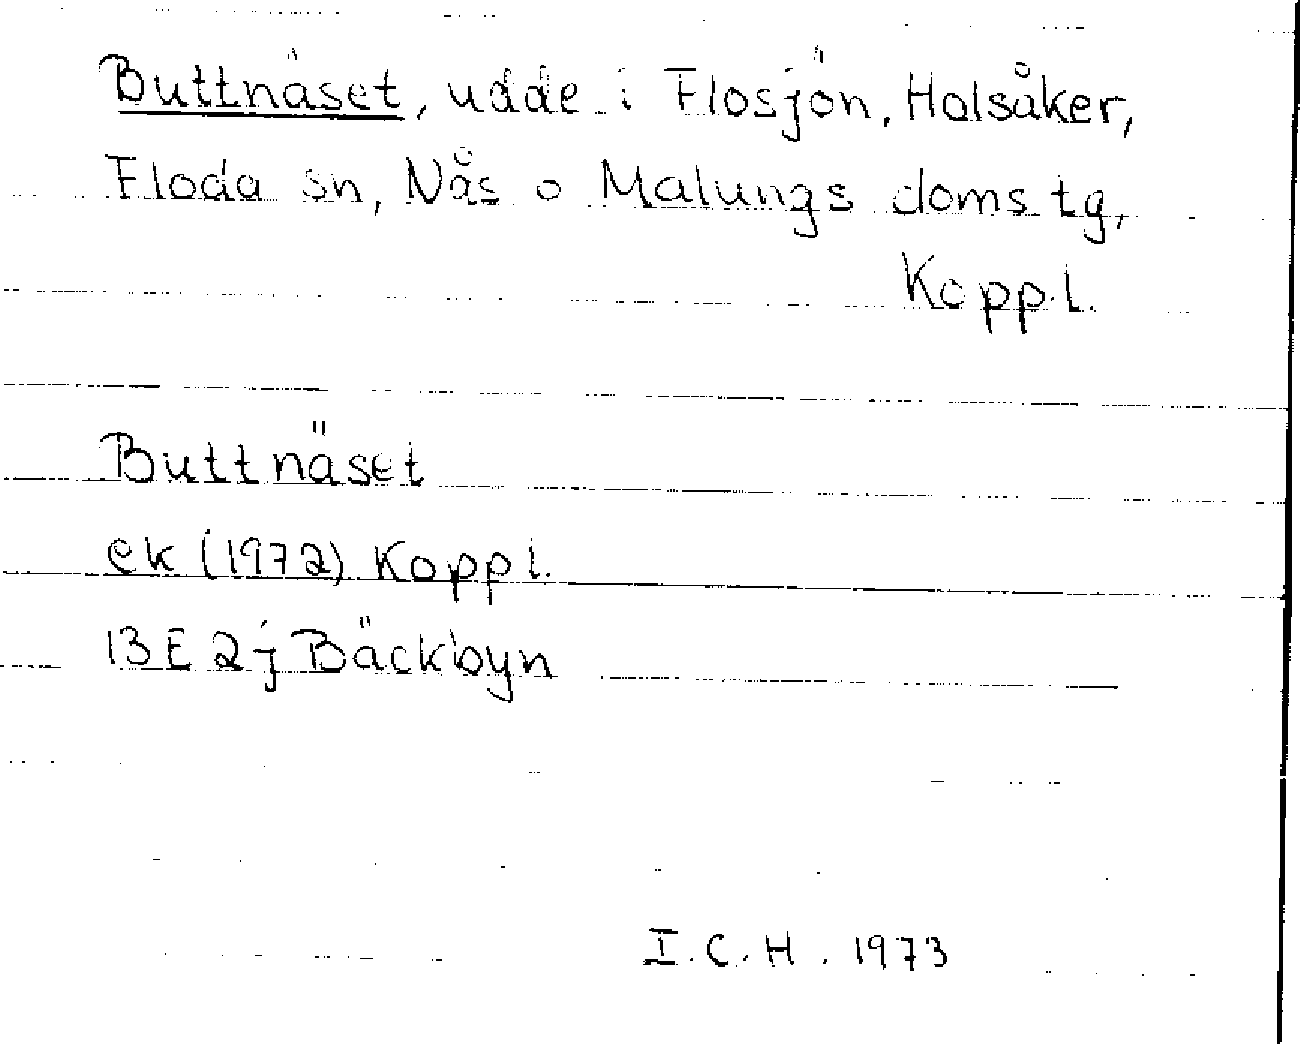 Buttnäset, udde i Flosjön, Holsåker,
Floda sn, Nås o Malungs doms.tg,
Kopp.l.
Buttnäset
ek (1972) Kopp l.
13E 2j Bäckbyn
I.C.H. 1973